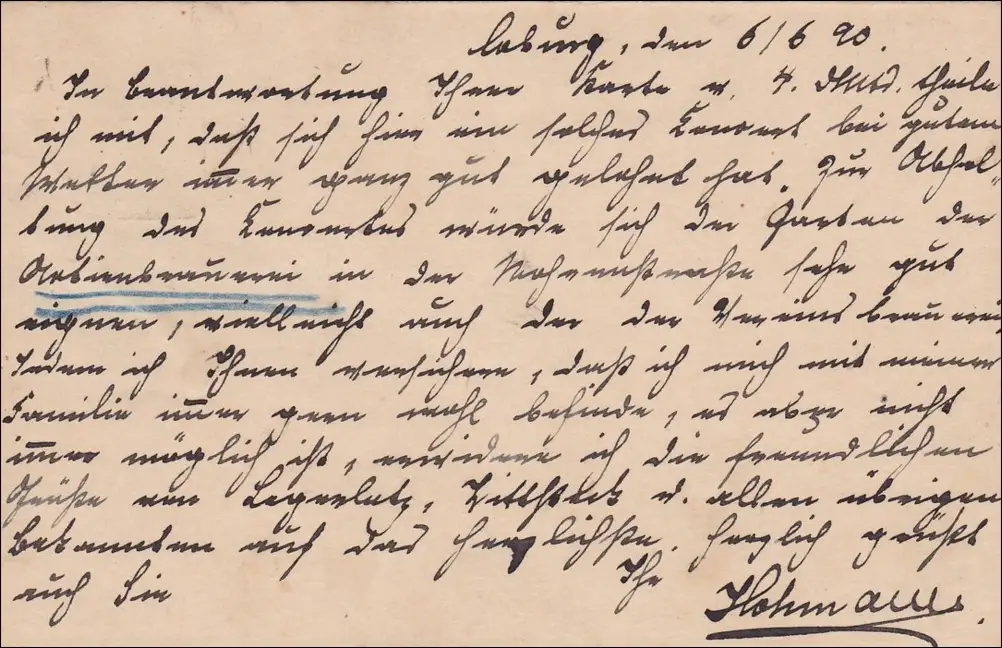 Coburg, den 6/6 90.
In Beantwortung Ihrer Karte v. 4. dMts. theile
ich mit, daß sich hier ein solches Concert bei gutem
Wetter im̅er ganz gut gelohnt hat. Zur Abhal-
tung des Concertes würde sich der Garten der
Actienbrauerei in der Mohrenstraße sehr gut
eignen, vielleicht auch der der Vereinsbrauerei
Indem ich Ihnen versichere, daß ich mich mit meiner
Familie im̅er gern wohl befinde, es aber nicht
im̅er möglich ist, erwidere ich die freundlichen
Grüße von Legerlotz, Wittstock u. allen übrigen
Bekannten auf das herzlichste. Herzlich grüßt
auch Sie Ihr
Hohmann.